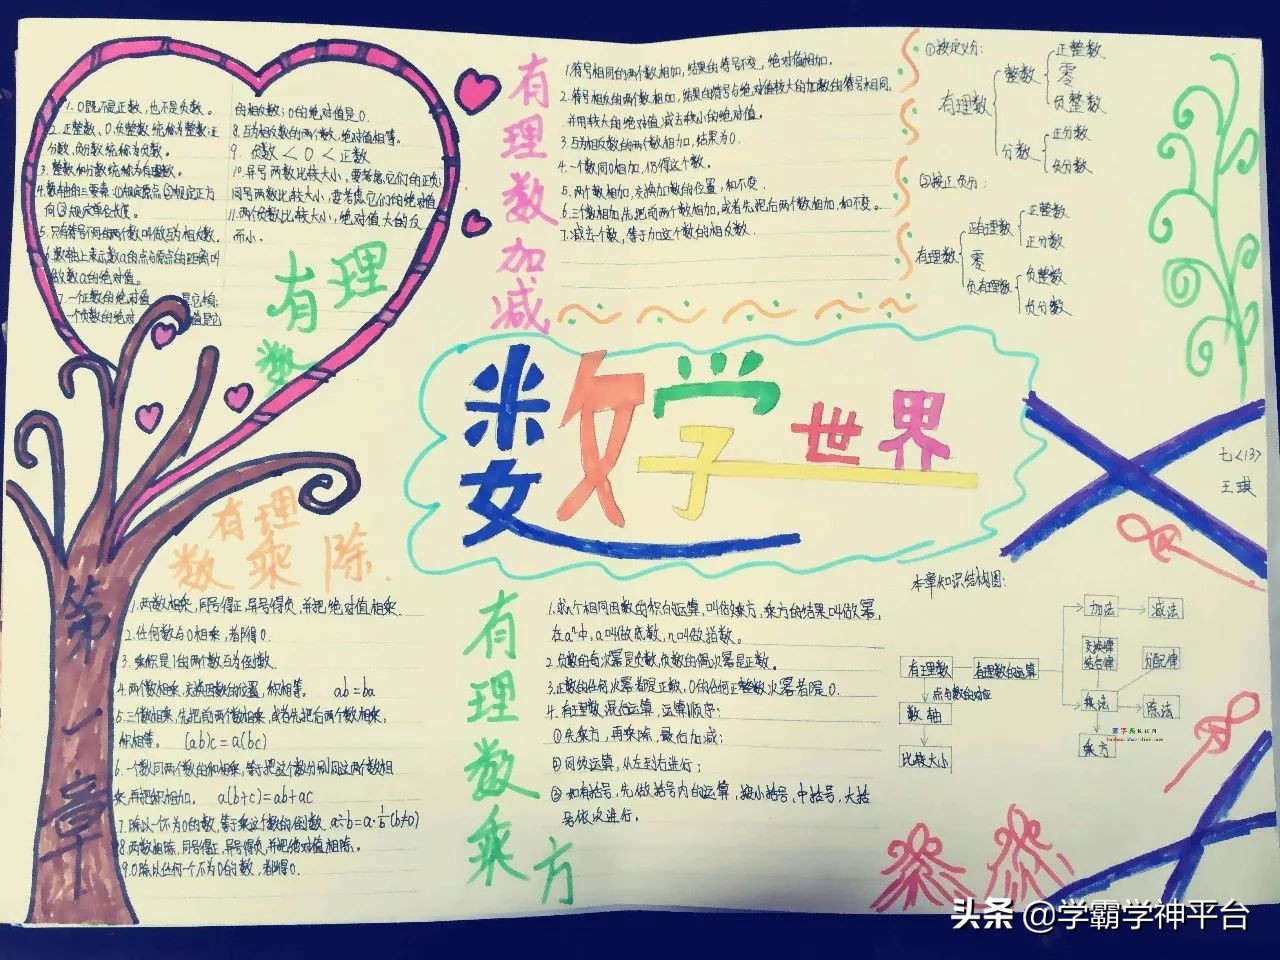 1. 0既不是正数，也不是负数。
2. 正整数、0、负整数统称为整数；正
分数、负分数统称为分数。
3. 整数和分数统称为有理数。
4. 数轴的三要素：①规定原点②规定正方
向③规定单位长度。
5. 只有符号不同的两个数叫做互为相反数。
6. 数轴上表示数a的点与原点的距离叫
做数a的绝对值。
7. 一个正数的绝对
是它
一个负数的绝对
值是它
的相反数；0的绝对值是0.
8. 互为相反数的两个数，绝对值相等。
9. 负数＜0＜正数
10. 异号两数比较大小，要考虑它们的正负；
同号两数比较大小，要考虑它们的绝对值
11. 两个负数比较大小，绝对值大的反
而小.
有理
数
有理数加减
1. 符号相同的两个数相加，结果的符号不变，绝对值相加.
2. 符号相反的两个数相加，结果的符号与绝对值较大的加数的符号相同，
并用较大的绝对值减去较小的绝对值。
3. 互为相反数的两个数相加，结果为0.
4. 一个数同0相加，仍得这个数。
5. 两个数相加，交换加数的位置，和不变.
6. 三个数相加，先把前两个数相加，或者先把后两个数相加，和不变。
7. 减去一个数，等于加这个数的相反数.
①按定义分：
有理数
整数
正整数
零
负整数
分数
正分数
负分数
②按正负分：
有理数
正有理数
正整数
正分数
零
负有理数
负整数
负分数
数学世界
七<13>
王琪
有理
数乘除.
1. 两数相乘，同号得正，异号得负，并把绝对值相乘.
2. 任何数与0相乘，都得0.
3. 乘积是1的两个数互为倒数.
4. 两个数相乘，交换因数的位置，积相等。 ab=ba
5. 三个数相乘，先把前两个数相乘，或者先把后两个数相乘，
积相等。 (ab)c=a(bc)
6. 一个数同两个数的和相乘，等于把这个数分别同这两个数相
乘，再把积相加. a(b+c)=ab+ac
7. 除以一个不为0的数，等于乘这个数的倒数. a÷b=a·1/b(b≠0)
8. 两数相除，同号得正，异号得负，并把绝对值相除.
9. 0除以任何一个不为0的数，都得0.
第一章
有理数乘方
1. 求n个相同因数的积的运算，叫做乘方，乘方的结果叫做幂，
在aⁿ中，a叫做底数，n叫做指数。
2. 负数的奇次幂是负数，负数的偶次幂是正数。
3. 正数的任何次幂都是正数，0的任何正整数次幂都是0.
4. 有理数混合运算，运算顺序：
①先乘方，再乘除，最后加减；
②同级运算，从左到右进行；
③如有括号，先做括号内的运算，按小括号、中括号、大括
号依次进行.
本章知识结构图：
有理数
有理数的运算
点与数的对应
数轴
比较大小
加法
减法
交换律
结合律
分配律
乘法
除法
乘方
头条 @学霸学神平台